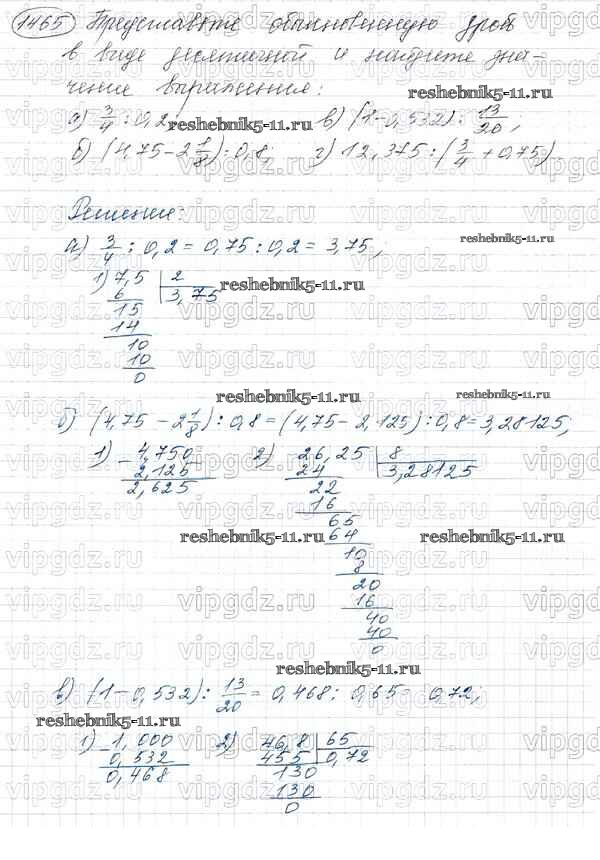 1465 Представьте обыкновенную дробь
в виде десятичной и найдите зна-
чение выражения:
а) 3/4 : 0,2; в) (1-0,532) : 13/20;
б) (4,75-2 1/8) : 0,8; г) 12,375 : (3/4 + 0,75).
reshebnik5-11.ru
reshebnik5-11.ru
Решение:
а) 3/4 : 0,2 = 0,75 : 0,2 = 3,75;
reshebnik5-11.ru
1) 7,5 | 2
6 3,75
15
14
10
10
0
reshebnik5-11.ru
reshebnik5-11.ru
reshebnik5-11.ru
б) (4,75 - 2 1/8) : 0,8 = (4,75 - 2,125) : 0,8 = 3,28125;
1) - 4,750 2) 26,25 | 8
2,125 24 3,28125
2,625 22
16
65
64
10
8
20
16
40
40
0
reshebnik5-11.ru
reshebnik5-11.ru
reshebnik5-11.ru
в) (1-0,532) : 13/20 = 0,468 : 0,65 = 0,72;
reshebnik5-11.ru
1) - 1,000 2) 46,8 | 65
0,532 455 0,72
0,468 130
130
0
vipgdz.ru